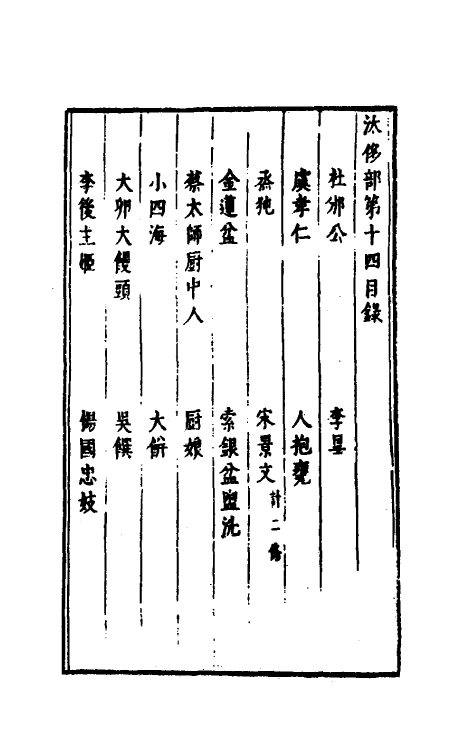 汰侈部第十四目錄
杜邠公　李昊
虞孝仁　人抱甕
烝㹠　宋景文計二條
金蓮盆　索銀盆盥洗
蔡太師厨中人　厨娘
小四海　大餅
大卵大饅頭　吳饌
李後主姬　楊國忠妓